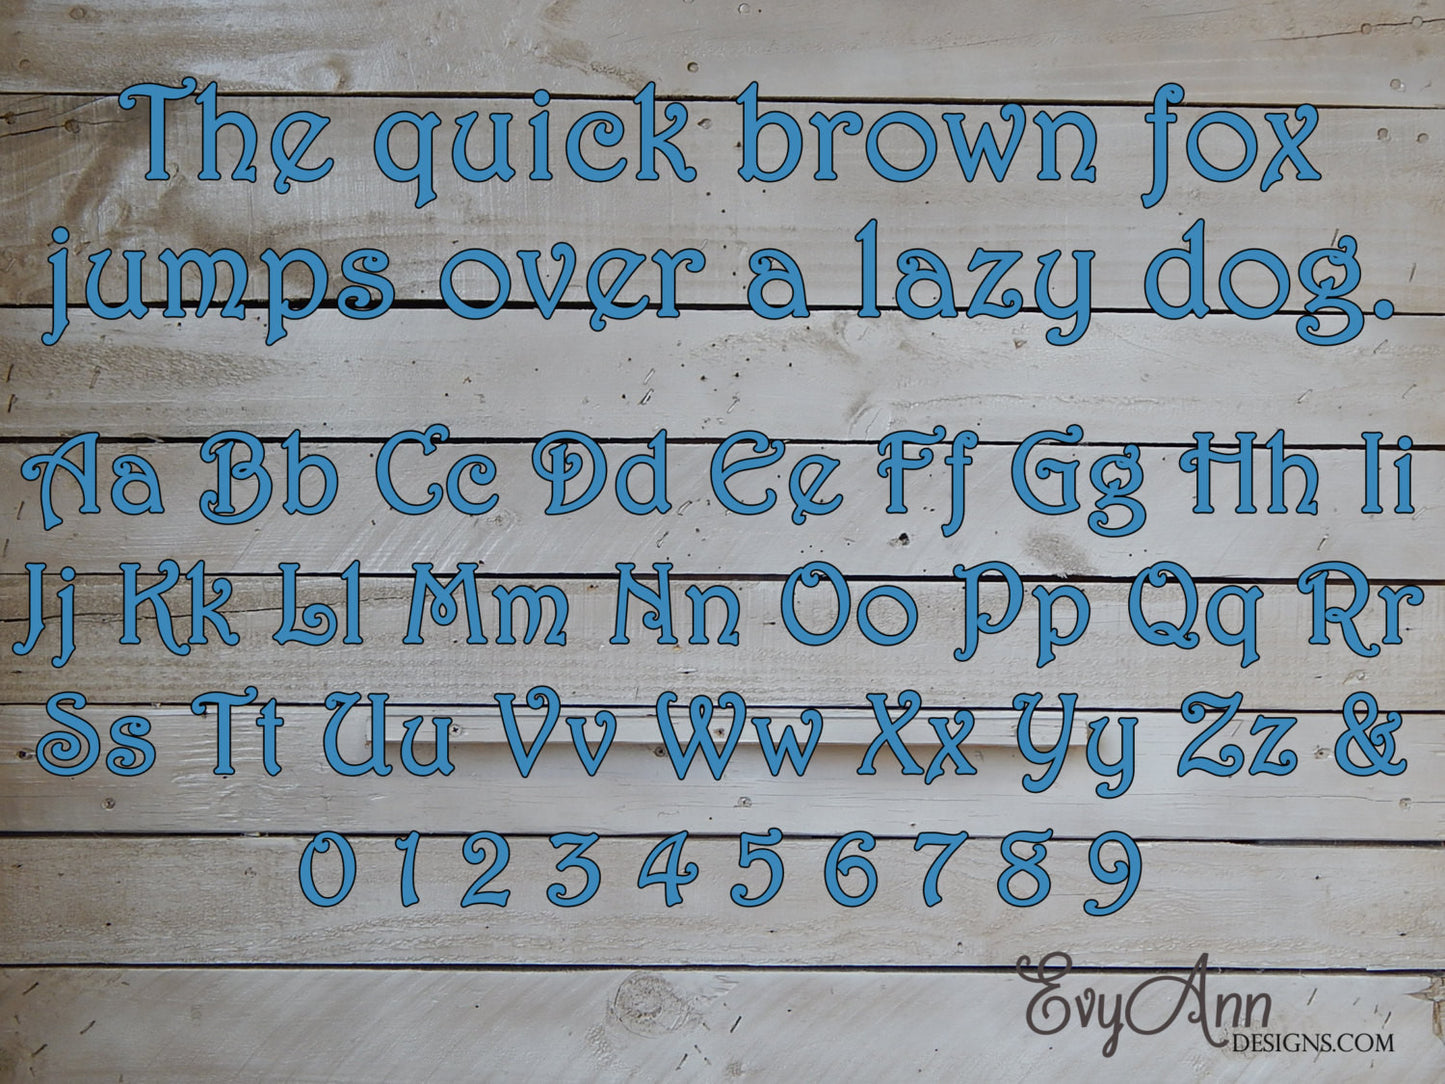 The quick brown fox
jumps over a lazy dog.
Aa Bb Cc Dd Ee Ff Gg Hh Ii
Jj Kk Ll Mm Nn Oo Pp Qq Rr
Ss Tt Uu Vv Ww Xx Yy Zz &
0 1 2 3 4 5 6 7 8 9
EvyAnn
DESIGNS.COM